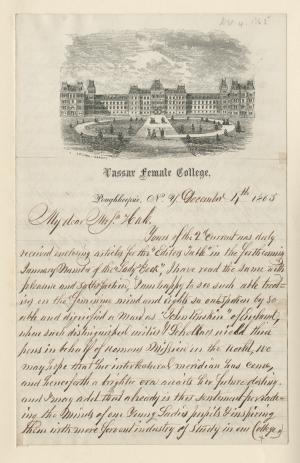 Dec. 4, 1865
Vassar Female College,
Poughkeepsie, N. Y. December 4th 1865
My dear Mrs. Hale,
Yours of the 2d current was duly
received enclosing article for the "Editors Table" in the forthcoming
January Number of the "Lady's Book", I have read the same with
pleasure and satisfaction, I am happy to see such able
in the feminine mind and rights so outspoken by so
able and dignified a man as of England,
when such distinguished writers & Scholars wield their
pens in behalf of womans Mission in the World, we
may hope that her intellectual meridian has come,
and henceforth a brighter era awaits her future destiny.
and I may add that already is this sentiment pervading
the Minds of our Young Ladies pupils & inspiring
them with more fervent industry of Study in our College,